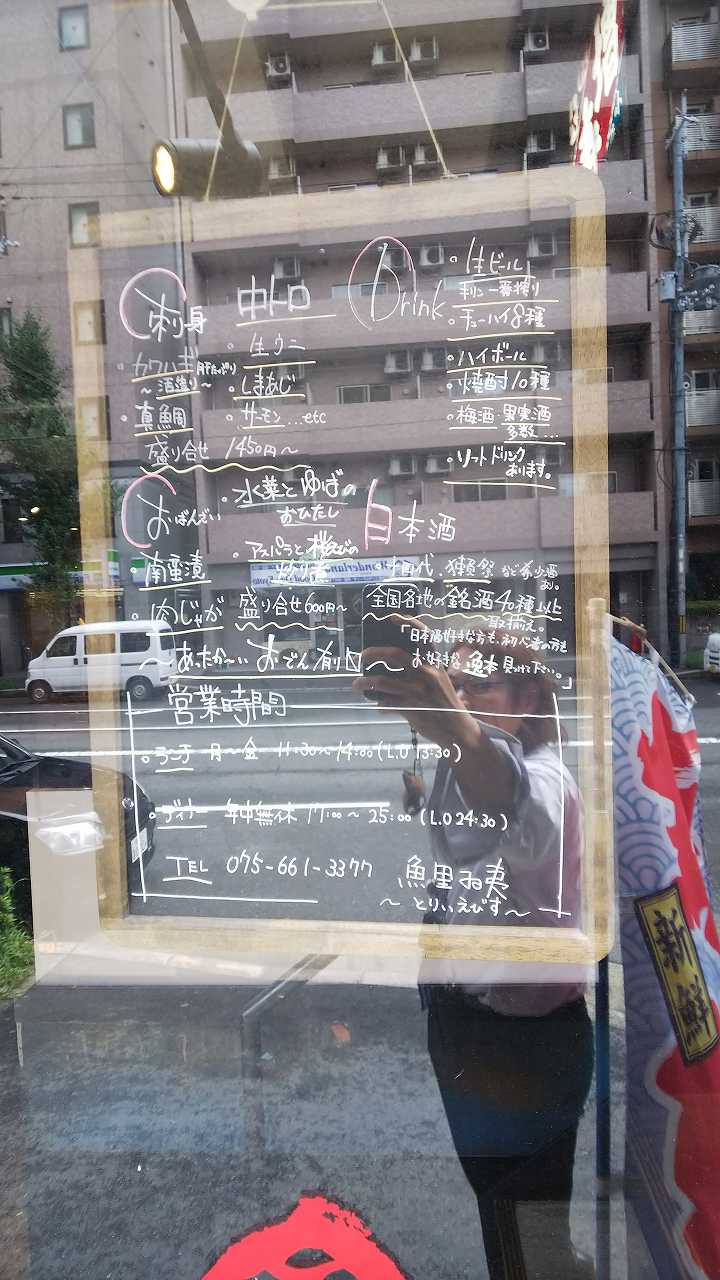 お刺身
中トロ
カワハギ 肝たっぷり
〜活造り〜
・真鯛
・生ウニ
・しまあじ
・サーモン…etc
盛り合せ 1450円〜
Drink
・生ビール
キリン一番搾り
・チューハイ8種
・ハイボール
・焼酎10種
・梅酒・果実酒
多数…
・ソフトドリンク
あります。
おばんざい
・水菜とゆばの
おひたし
・南蛮漬
・アスパラと桜えびの
・肉じゃが
盛り合せ600円〜
〜あったか〜いおでん有り〜
日本酒
十四代、獺祭 など希少酒
あり。
全国各地の銘酒40種以上
取揃え。
「日本酒好きな方も、初心者の方も
お好きな1本見つけて下さい。」
営業時間
・ランチ 月〜金 11:30〜14:00 (L.O 13:30)
・ディナー 年中無休 17:00〜25:00 (L.O 24:30)
TEL 075-661-3377
魚里ゑ夷
〜とりいえびす〜
新鮮